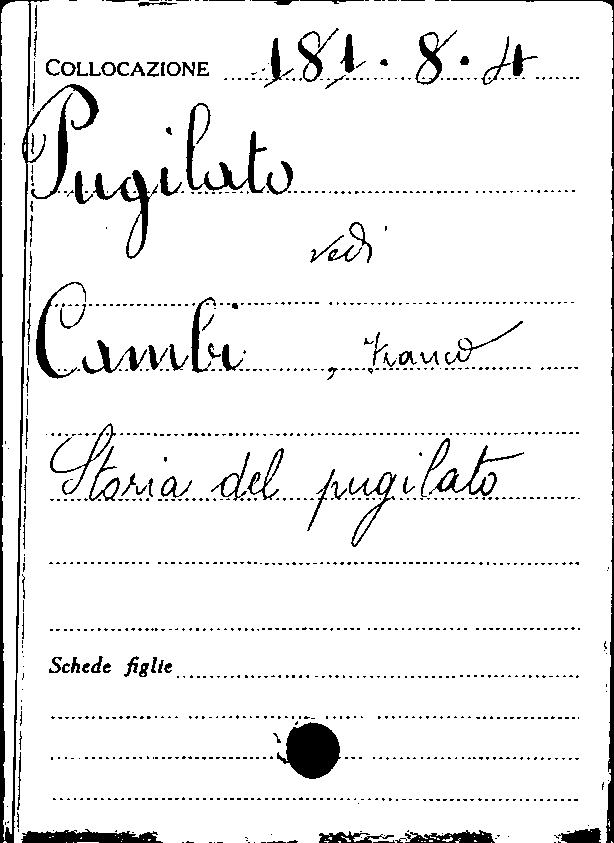 COLLOCAZIONE 181.8.4
Pugilato
vedi
Cambi, Franco
Storia del pugilato
Schede figlie